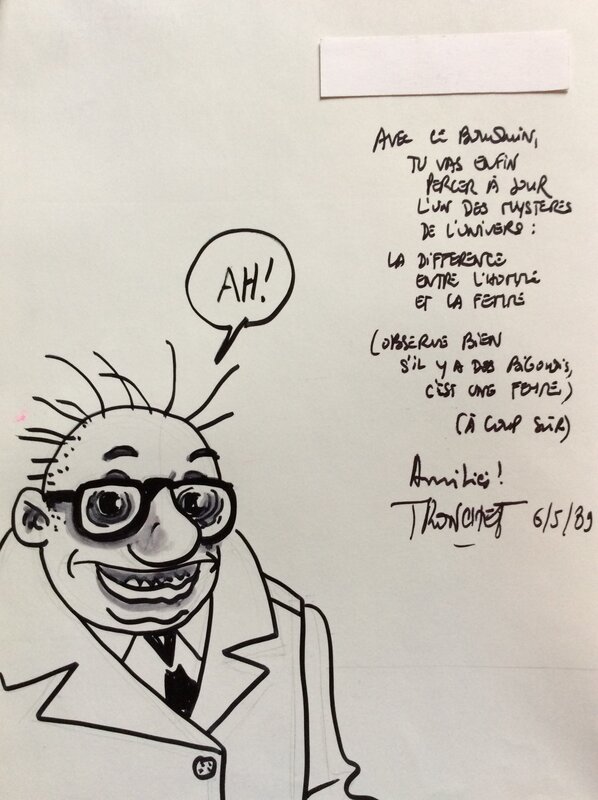 AVEC CE BOUQUIN,
TU VAS ENFIN
PERCER À JOUR
L'UN DES MYSTERES
DE L'UNIVERS :
LA DIFFERENCE
ENTRE L'HOMME
ET LA FEMME
(OBSERVE BIEN
S'IL Y A DES BIGOUDIS,
C'EST UNE FEMME)
(À COUP SÛR)
Amitiés !
TRONCHET 6/5/89
AH!